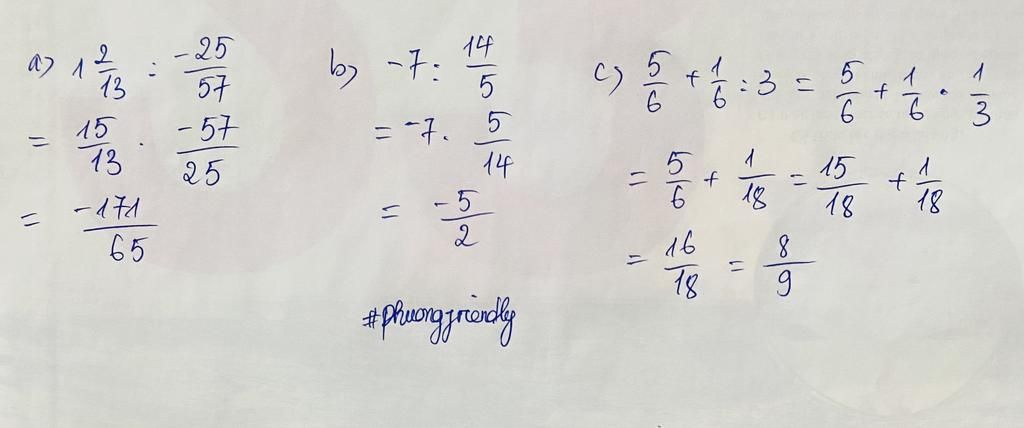 a) 1 2/13 : -25/57
= 15/13 . -57/25
= -171/65
b) -7 : 14/5
= -7 . 5/14
= -5/2
c) 5/6 + 1/6 : 3 = 5/6 + 1/6 . 1/3
= 5/6 + 1/18 = 15/18 + 1/18
= 16/18 = 8/9
#phuongfriendly